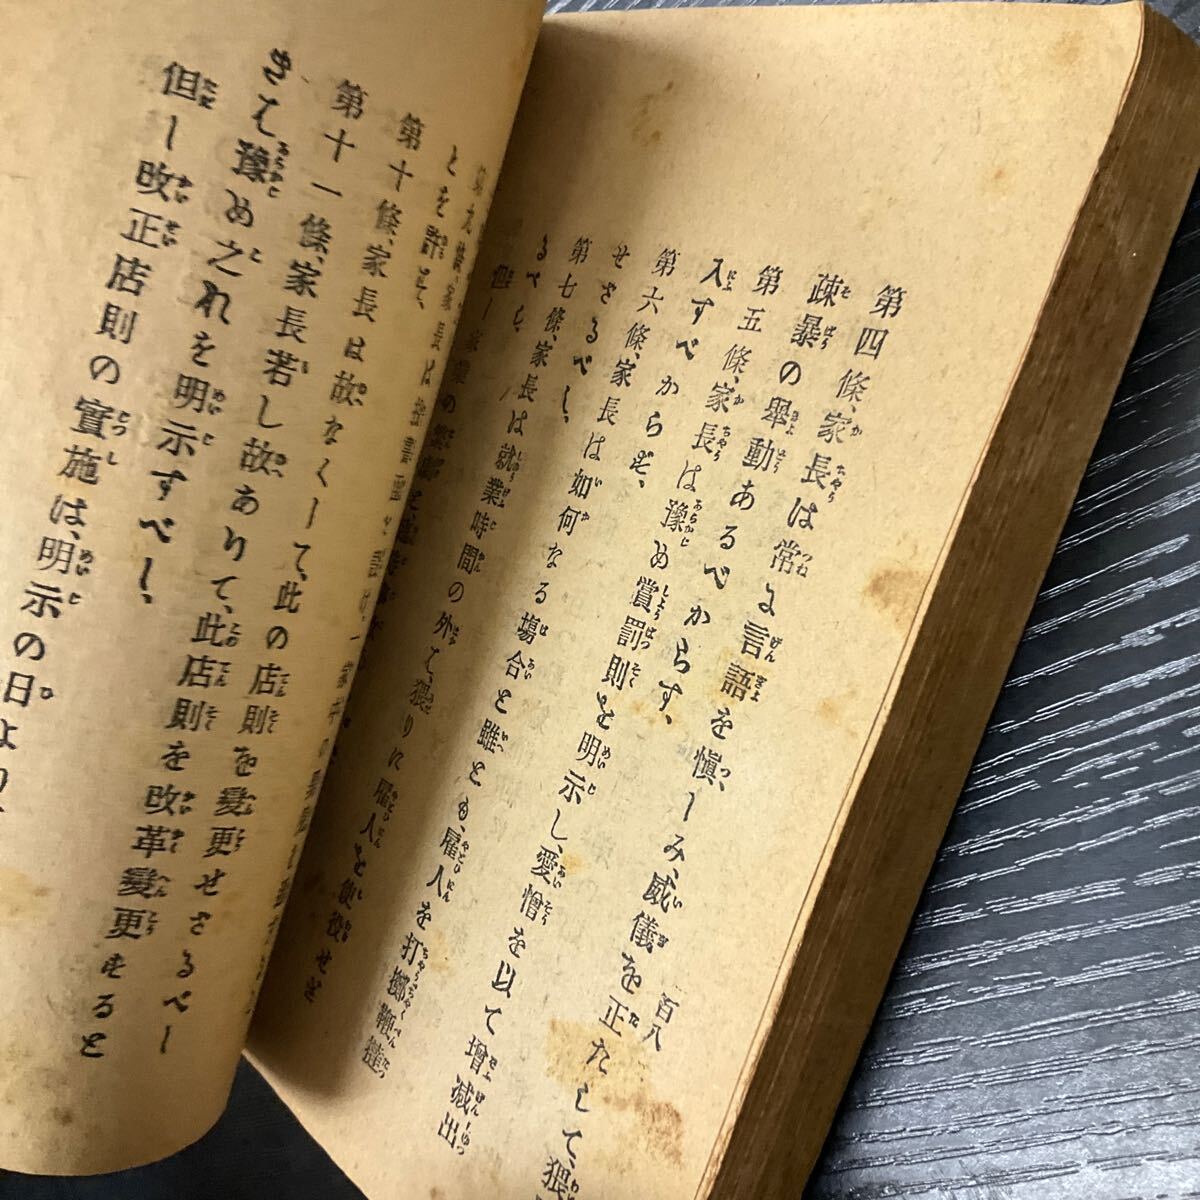 百八
第四條、家長は常に言語を愼しみ、威儀を正たして、猥
疎暴の擧動あるべからす、
第五條、家長は豫め賞罰則を明示し、愛憎を以て増减出
入すべからず、
第六條、家長は如何なる塲合と雖とも、雇人を打擲鞭撻
せさるべし、
第七條、家長は就業時間の外は、猥りに雇人を使役せざ
るべし、
但し
とを許さ
第十條、家長は故なくして、此の店則を變更せさるべし
第十一條、家長若し故ありて、此店則を改革變更すると
きは豫め之れを明示すべし、
但し改正店則の實施は、明示の日より